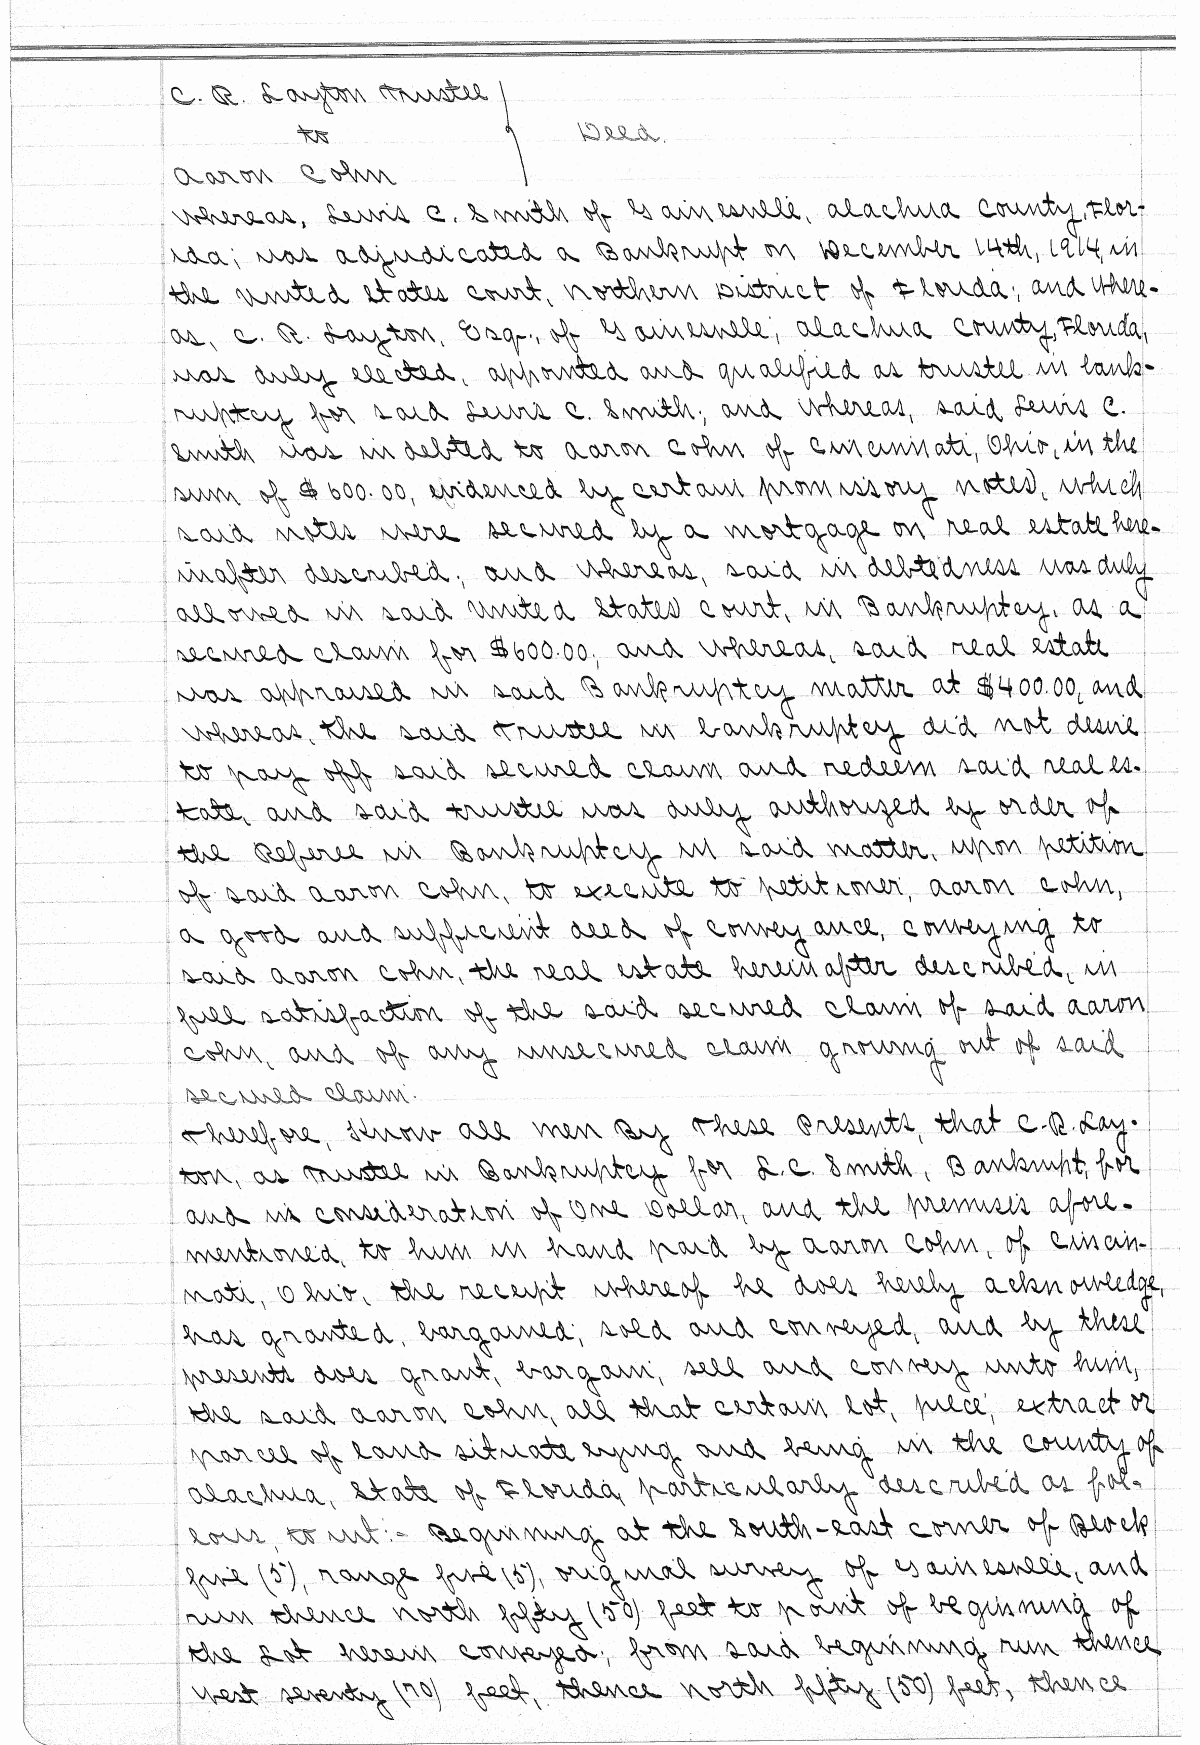 C. R. Layton Trustee
to Deed.
Aaron Cohn
Whereas, Lewis C. Smith of Gainesville, Alachua County, Flor-
ida; was adjudicated a Bankrupt on December 14th, 1914, in
the United States Court, Northern District of Florida; and where-
as, C. R. Layton, Esq., of Gainesville, Alachua County, Florida,
was duly elected, appointed and qualified as trustee in bank-
ruptcy for said Lewis C. Smith; and whereas, said Lewis C.
Smith was indebted to Aaron Cohn of Cincinnati, Ohio, in the
sum of $600.00, evidenced by certain promissory notes, which
said notes were secured by a mortgage on real estate here-
inafter described; and whereas, said indebtedness was duly
allowed in said United States Court, in Bankruptcy, as a
secured claim for $600.00; and whereas, said real estate
was appraised in said Bankruptcy matter at $400.00, and
whereas, the said Trustee in bankruptcy did not desire
to pay off said secured claim and redeem said real es-
tate, and said trustee was duly authorized by order of
the Referee in Bankruptcy in said matter, upon petition
of said Aaron Cohn, to execute to petitioner, Aaron Cohn,
a good and sufficient deed of conveyance, conveying to
said Aaron Cohn, the real estate hereinafter described, in
full satisfaction of the said secured claim of said Aaron
Cohn, and of any unsecured claim growing out of said
secured claim.
Therefore, Know All Men By These Presents, that C. R. Lay-
ton, as Trustee in Bankruptcy for L. C. Smith, Bankrupt, for
and in consideration of One Dollar, and the premises afore-
mentioned, to him in hand paid by Aaron Cohn, of Cincin-
nati, Ohio, the receipt whereof he does hereby acknowledge,
has granted, bargained, sold and conveyed, and by these
presents does grant, bargain, sell and convey unto him,
the said Aaron Cohn, all that certain lot, piece, extract or
parcel of land situate lying and being in the County of
Alachua, State of Florida, particularly described as fol-
lows, to wit:- Beginning at the South-east corner of Block
five (5), range five (5), original survey of Gainesville, and
run thence north fifty (50) feet to point of beginning of
the Lot herein conveyed; from said beginning run thence
West seventy (70) feet, thence north fifty (50) feet, thence